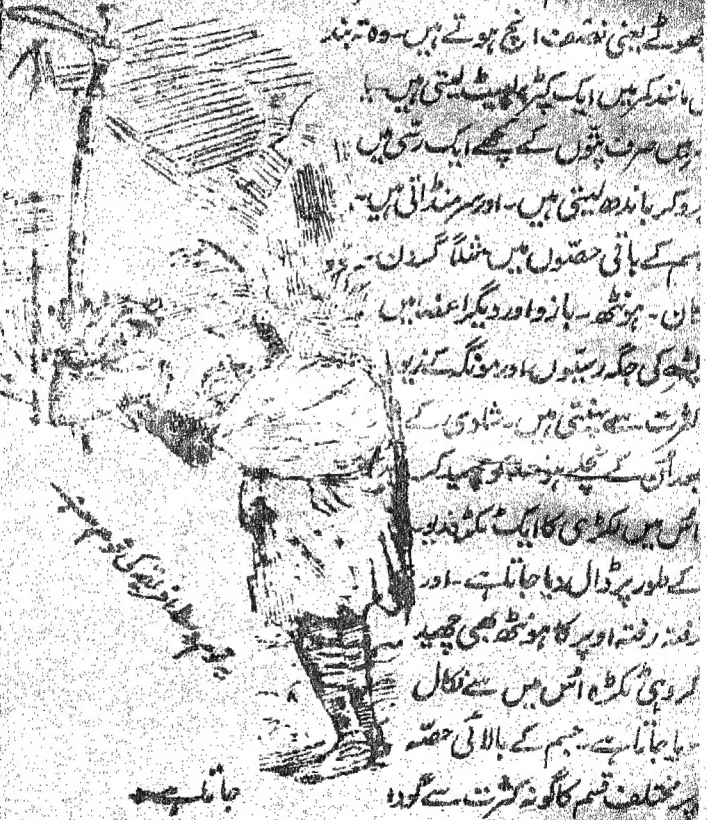 چھوٹے یعنی نصف انچ ہوتے ہیں۔ وہ تہ بند
مانند کمر میں ایک کپڑا لپیٹ لیتی ہیں۔ یا
صرف پتوں کے گچھے ایک رسی میں
پرو کر باندھ لیتی ہیں۔ اور سر منڈاتی ہیں۔
جسم کے باقی حصوں میں مثلاً گردن۔
کان۔ ہونٹھ۔ بازو اور دیگر اعضا میں
کی جگہ رسیوں اور مونگے کے زیور
کثرت سے پہنتی ہیں۔ شادی کے
بعد ان کے نچلے ہونٹھ کو چھید کر
اس میں لکڑی کا ایک ٹکڑہ زیور
کے طور پر ڈال دیا جاتا ہے۔ اور
رفتہ رفتہ اوپر کا ہونٹھ بھی چھید
کر وہی ٹکڑہ اس میں سے نکال
دیا جاتا ہے۔ جسم کے بالائی حصہ
پر مختلف قسم کا گونہ کثرت سے گودا
جاتا ہے